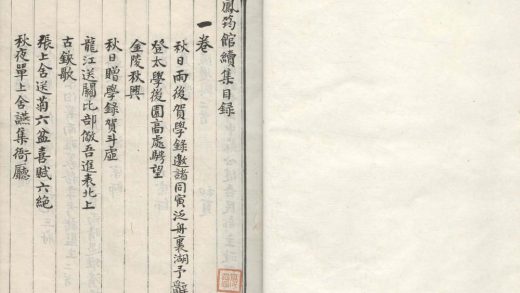 鳳筠館續集目錄
一卷
秋日雨後賀學錄邀諸同寅泛舟裏湖予辭
登太學後園高處騁望
金陵秋興
秋日贈學錄賀斗虛
龍江送關比部倣吾進表北上
古鏡歌
張上舍送菊六盆喜賦六絕
秋夜單上舍讌集衙廳